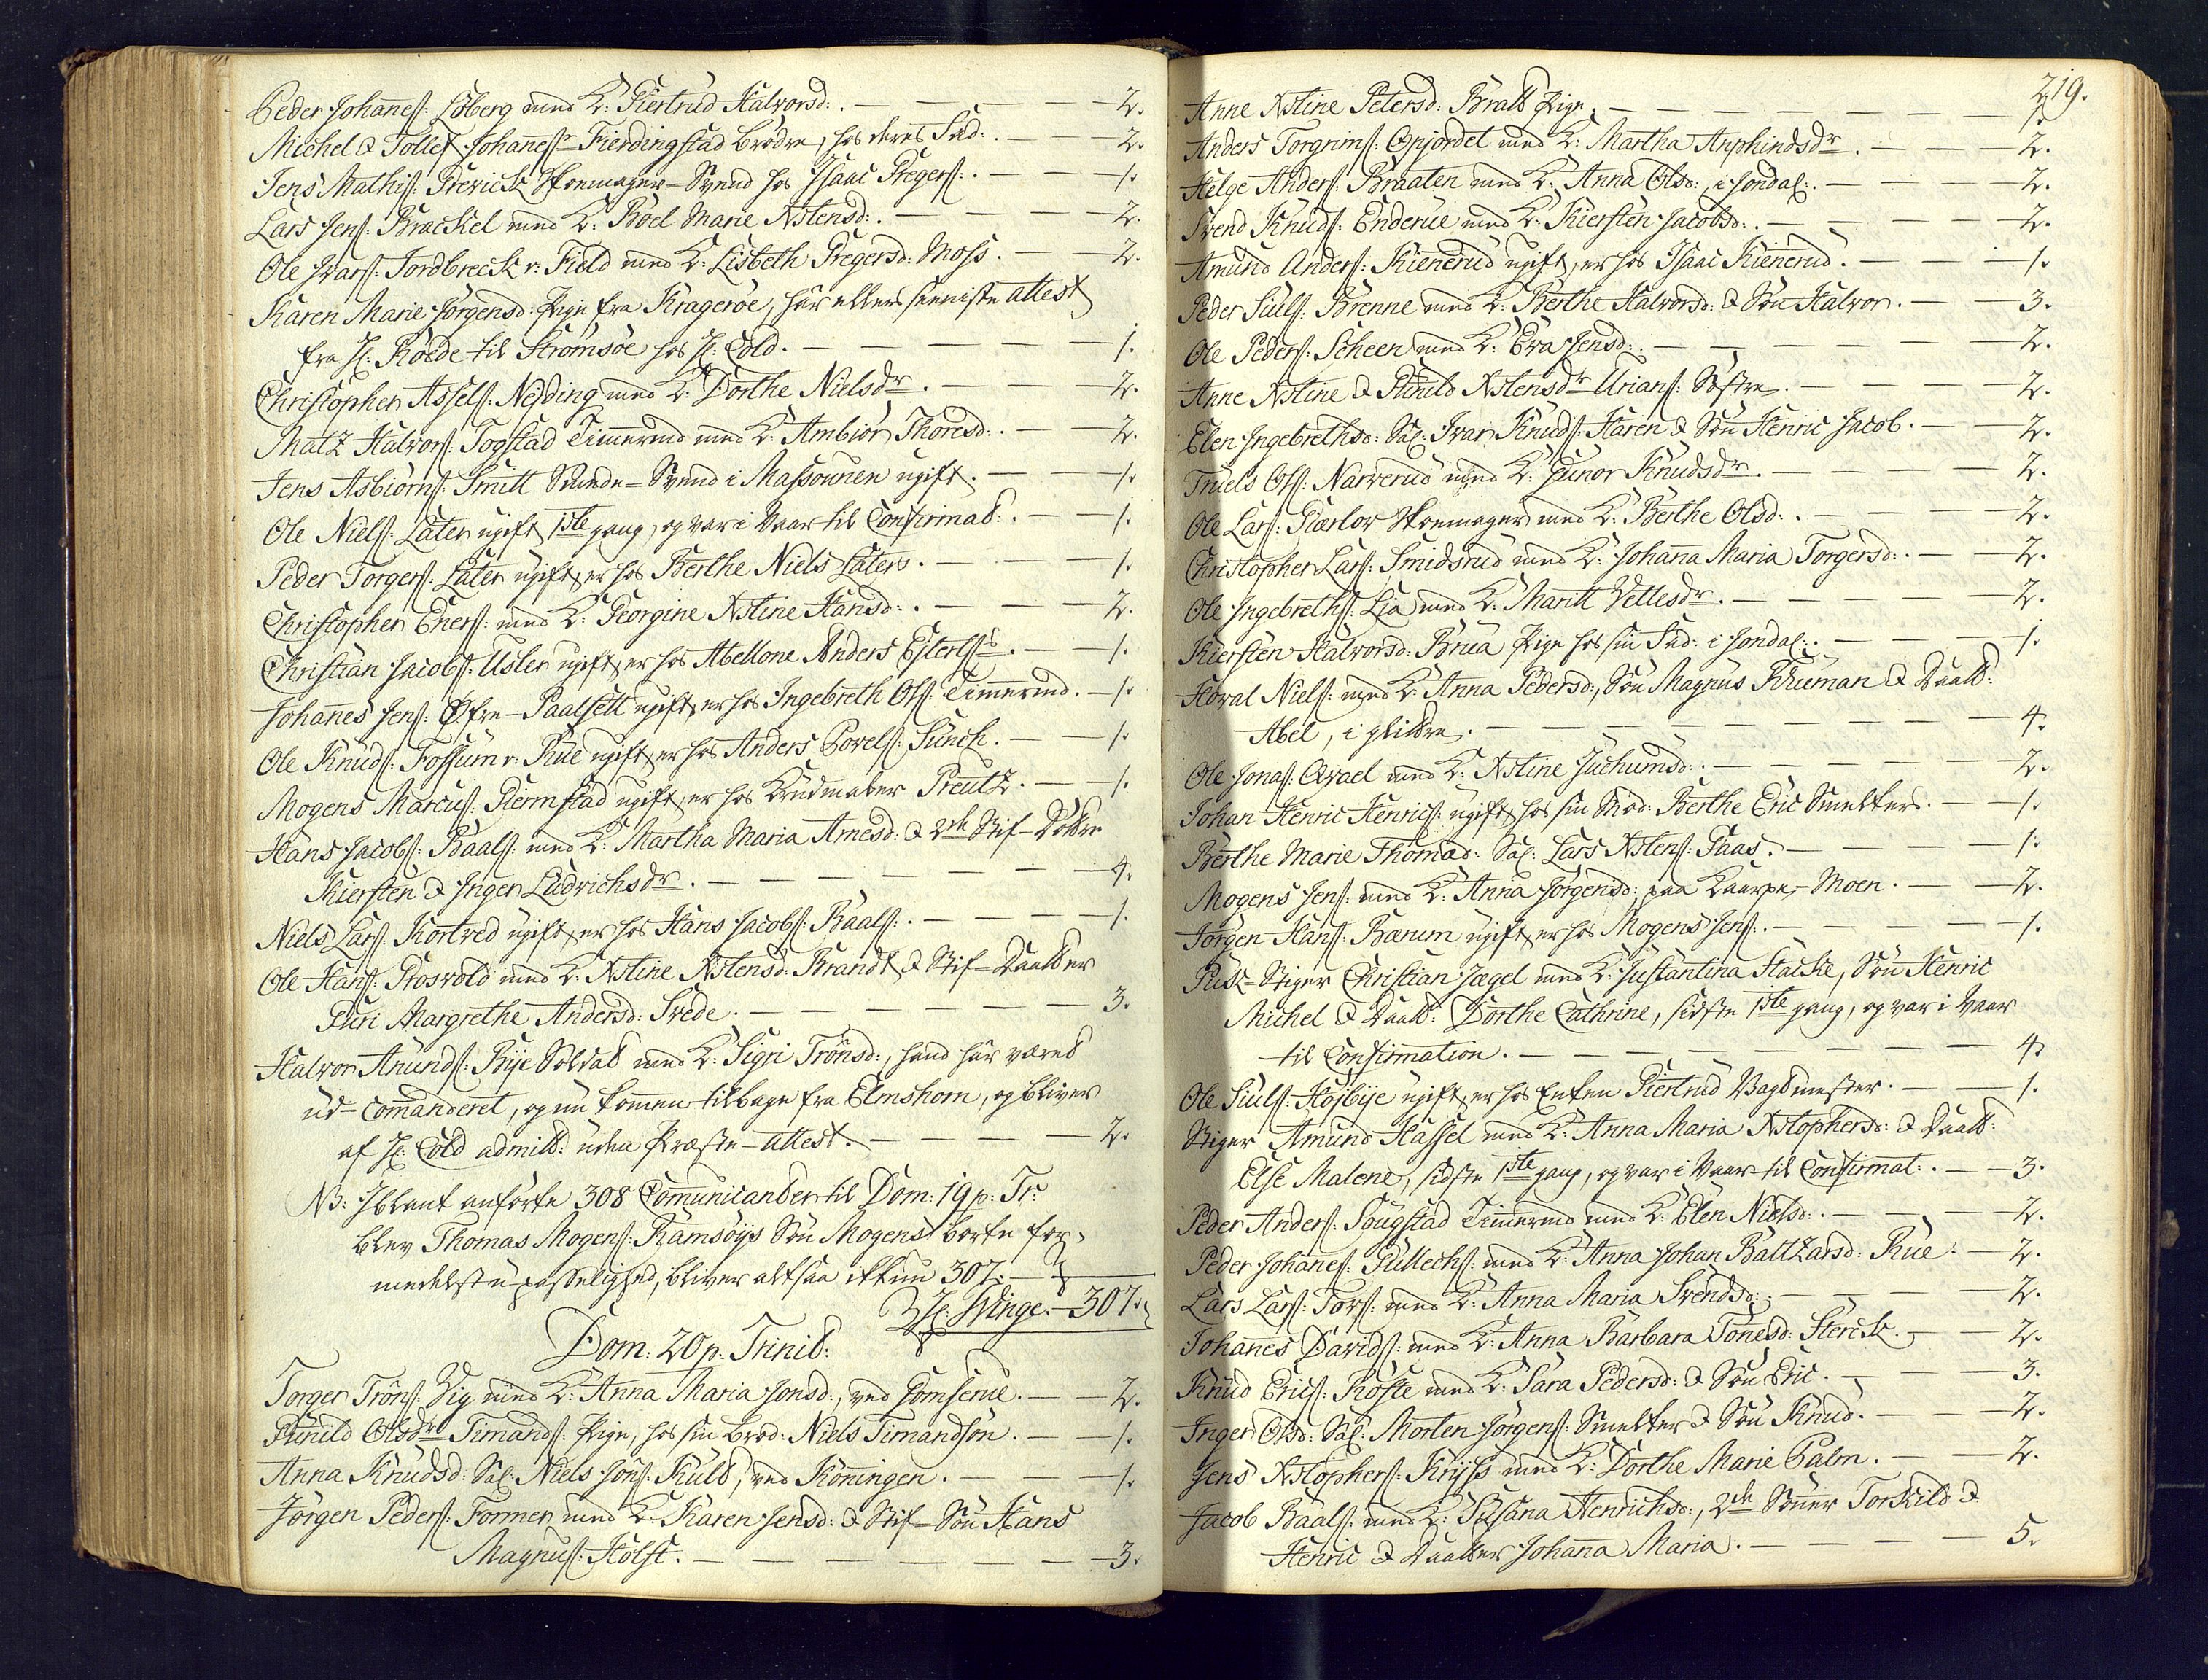 Peder Johanes: Löberg med K: Giertrud Halvorsd: . — — — — 2.
Michel & Tollef Johanes: Fierdingstad brödre, hos deres Fad: . — 2.
Jens Mathis: Frerick Skomager-Svend hos Isaac Gregers: . — — 1.
Lars Jens: Brackel med K: Boel Marie Xstensd: . — — — — 2.
Ole Ivars: Jordbreck v: Field med K: Lisbeth Gregersd: Moss. — — 2.
Karen Marie Jörgensd: Pige fra Krageröe, har ellers seeniste attest
fra H: Röede til Strömsöe hos H: Cold. — — — — — 1.
Christopher Assels: Neyding med K: Dorthe Nielsdr. — — — 2.
Matz Halvors: Togstad Timmermd med K: Ambiör Thoresd: . — — 2.
Jens Asbiörns: Smitt Svend i Massovnen ugift. — — — 1.
Ole Niels: Sæter ugift, 1ste gang, og var i Vaar til Confirmat: . — — 1.
Peder Torgers: Sæter ugift, er hos Berthe Niels Sæters. — — 1.
Christopher Eners: med K: Georgine Xstine Hansd: . — — — 2.
Christian Jacobs: Usler ugift, er hos Abellone Anders . — — 1.
Johanes Jens: Öfre-Paalsett ugift, er hos Ingebreth Ols: Timmermd. — 1.
Ole Knuds: Fossum v: Rue ugift, er hos Anders Povels: Sunch. — — 1.
Mogens Marcus: Giermstad ugift, er hos Krudmaler Preutz. — — 1.
Hans Jacobs: Baals: med K: Martha Maria Arnesd: & 2de Stif-Döttre
Kiersten & Inger Ludvichsdr. — — — — — — — 4.
Niels Lars: Kortved ugift, er hos Hans Jacobs: Baals: . — — — 1.
Ole Hans: Grosvold med K: Xstine Xstensd: Brandt & Stif-Daatter
Guri Margrethe Andersd: Svede. — — — — — — 3.
Halvor Anunds: Bye Soldat med K: Sigri Trönsd: , hand har væred
ud-comanderet, og nu kommen tilbage fra Elmshorn, og bliver
af H: Cold admitt: uden Præste-attest. — — — — 2.
NB: Iblant anförte 308 Comunicanter til Dom: 19 p: Tr:
blev Thomas Mogens: Ramsöys Sön Mogens borte for-
medelst u-passelighed, bliver altsaa ikkun 307. —
H: Winge. — 307.
Dom: 20 p: Trinit:
Torger Tröns: Vig med K: Anna Maria Jonsd: , ved Gomserue. — — 2.
Gunild Olsdr Timands: Pige, hos sin brod: Niels Timandsön. — — 1.
Anna Knudsd: Sal: Niels Jons: Kuld, ved Köningen. — — — 1.
Jörgen Peders: Former med K: Karen Jensd: & Stif-Sön Hans
Magnus: Holst. — — — — — — — — 3.
219.
Anne Xstine Petersd: Bratt Pige. — — — — — — 1.
Anders Torgrims: Opjordet med K: Martha Anphindsdr. — — — 2.
Helge Anders: Braaten med K: Anna Olsd: , i Jondal: . — — — 2.
Svend Knuds: Enderue med K: Kiersten Jacobsd: . — — — 2.
Amund Anders: Kienerud ugift, er hos Isaac Kienerud. — — — 1.
Peder Siuls: Brenne med K: Berthe Halvorsd: & Sön Halvor. — — 3.
Ole Peders: Scheen med K: Eva Jensd: . — — — — — 2.
Anne Xstine & Gunild Xstensdr Urians: Söstre. — — — — 2.
Elen Ingebrethsd: Sal: Ivar Knuds: Haren & Sön Henric Jacob. — — 2.
Truels Ols: Narverud med K: Gunor Knudsdr. — — — — 2.
Ole Lars: Giærlov Skomager med K: Berthe Olsd: . — — — — 2.
Christopher Lars: Smidsrud med K: Johanna Maria Torgersd: . — — 2.
Ole Ingebreths: Lia med K: Maritt Vettesdr. — — — — 2.
Kiersten Halvorsd: Brua Pige hos sin Fad: i Jondal: . — — — 1.
Hoval Niels: med K: Anna Pedersd: , Sön Magnus Truman & Daatt:
Abel, i . — — — — — — — — 4.
Ole Jonas: Qvael med K: Xstine Juchumsd: . — — — — — 2.
Johan Henric Henrics: ugift, hos sin Mod: Berthe Eric Smelters. — — 1.
Berthe Marie Thomæd: Sal: Lars Xstens: Paas. — — — — 1.
Mogens Jens: med K: Anna Jörgensd: , paa Kaarpe-Moen. — — 2.
Jörgen Hans: Bærum ugift, er hos Mogens Jens: . — — — — 1.
Puk-Stiger Christian Jagel med K: Justantina Hacke, Sön Henric
Michel & Daatt: Dorthe Cathrine, sidste 1ste gang, og var i Vaar
til Confirmation. — — — — — — — — 4.
Ole Siuls: Höjbye ugift, er hos Enken Giertrud Vagtmester. — — 1.
Stiger Amund Hassel med K: Anna Maria Xstophersd: & Daatt:
Else Malene, sidste 1ste gang, og var i Vaar til Confirmat: . — — 3.
Peder Anders: Sougstad Timmermd med K: Elen Nielsd: . — — — 2.
Peder Johanes: Gullechs: med K: Anna Johan Baltzarsd: Rue. — 2.
Lars Lars: Tors: med K: Anna Maria Svendsd: . — — — — 2.
Johanes Davids: med K: Anna Barbara Tönesd: Sterck. — — 2.
Knud Erics: Röste med K: Sara Pedersd: & Sön Eric. — — — 3.
Inger Olsd: Sal: Morten Jörgens: Smelter & Sön Knud. — — — 2.
Jens Xstophers: Kryss med K: Dorthe Marie Palm. — — — 2.
Jacob Baals: med K: Susana Henrichsd: , 2de Sönner Torkild &
Henric & Daatter Johanna Maria. — — — — — 5.